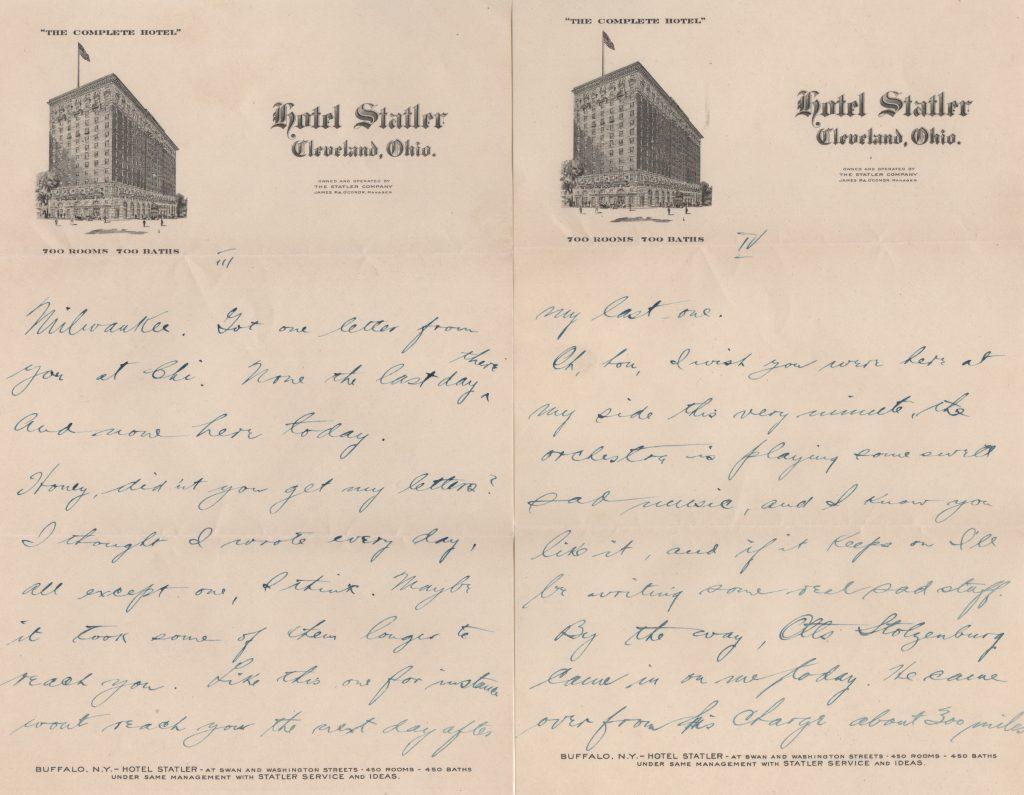 "THE COMPLETE HOTEL"
Hotel Statler
Cleveland, Ohio.
OWNED AND OPERATED BY
THE STATLER COMPANY
JAMES H. O'CONOR, MANAGER
700 ROOMS 700 BATHS
III
Milwaukee. Got one letter from
you at Chi. None the last day there
And none here today.
Honey, did'nt you get my letters?
I thought I wrote every day,
all except one, I think. Maybe
it took some of them longer to
reach you. Like this one for instance
wont reach you the next day after
BUFFALO, N.Y. – HOTEL STATLER - AT SWAN AND WASHINGTON STREETS - 450 ROOMS - 450 BATHS
UNDER SAME MANAGEMENT WITH STATLER SERVICE AND IDEAS.
"THE COMPLETE HOTEL"
Hotel Statler
Cleveland, Ohio.
OWNED AND OPERATED BY
THE STATLER COMPANY
JAMES H. O'CONOR, MANAGER
700 ROOMS 700 BATHS
IV
my last one.
Oh, hon, I wish you were here at
my side this very minute, the
orchestra is playing some swell
sad music, and I know you
like it, and if it keeps on I'll
be writing some real sad stuff.
By the way, Otts Stolzenburg
came in on me today. He came
over from his charge about 300 miles
BUFFALO, N.Y. – HOTEL STATLER - AT SWAN AND WASHINGTON STREETS - 450 ROOMS - 450 BATHS
UNDER SAME MANAGEMENT WITH STATLER SERVICE AND IDEAS.